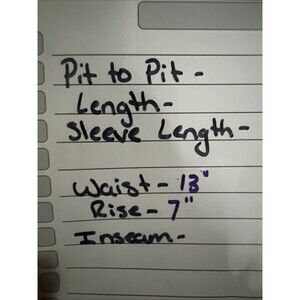 Pit to Pit -
Length -
Sleeve Length -
Waist - 13"
Rise - 7"
Inseam -